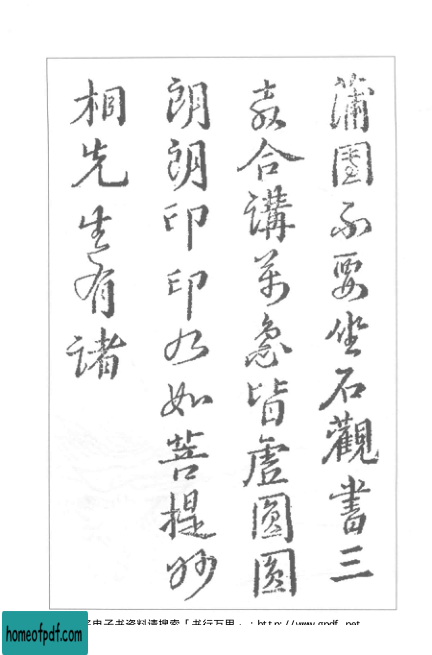 蒲團不要坐石觀書三
教合講萬念皆虛圓圓
朗朗印印如如菩提妙
相先生有諸
电子书资料请搜索「书行万里」:http://www.gpdf.net
homeofpdf.com